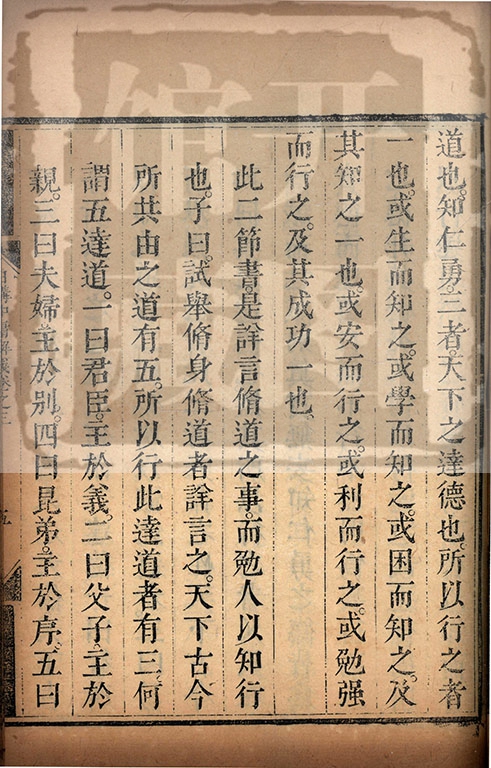 道也。知仁勇三者。天下之達德也。所以行之者
一也。或生而知之。或學而知之。或困而知之。及
其知之一也。或安而行之。或利而行之。或勉强
而行之。及其成功一也。
此二節書。是詳言脩道之事。而勉人以知行
也。子曰。試舉脩身脩道者詳言之。天下古今
所共由之道有五。所以行此達道者有三。何
謂五達道。一曰君臣。主於義。二曰父子。主於
親。三曰夫婦。主於別。四曰昆弟。主於序。五曰
五